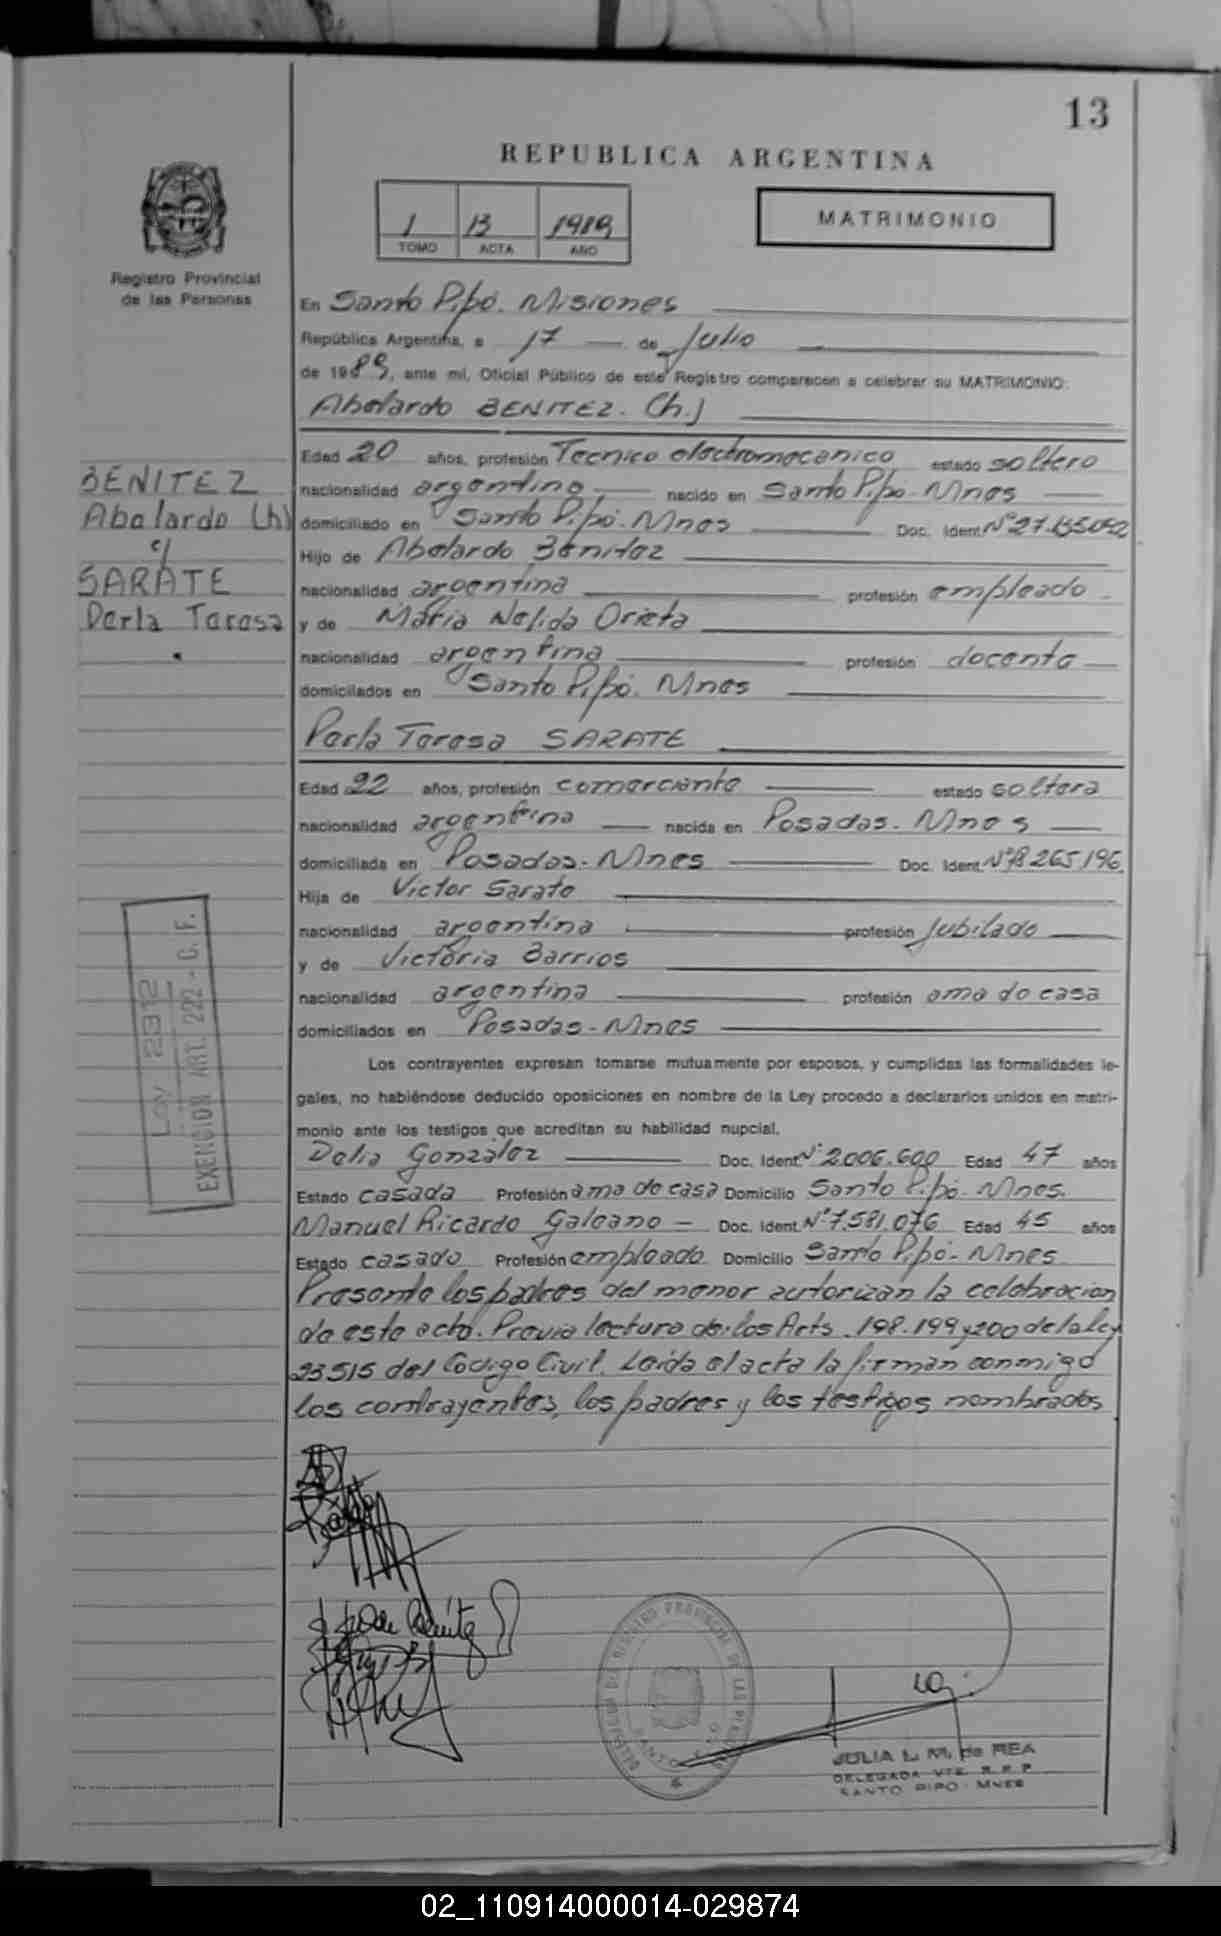 13
REPUBLICA ARGENTINA
1 13 1989
TOMO ACTA AÑO
MATRIMONIO
Registro Provincial
de las Personas
En Santo Pipó. Misiones
República Argentina, a 17 de Julio
de 1989, ante mí, Oficial Público de este Registro comparecen a celebrar su MATRIMONIO:
Abelardo BENITEZ. (h.)
BENITEZ
Abelardo (h)
c/
SARATE
Perla Teresa
Edad 20 años, profesión Tecnico electromecanico estado soltero
nacionalidad argentina nacido en Santo Pipó. Mnes
domiciliado en Santo Pipó. Mnes Doc. Ident. Nº
Hijo de Abelardo Benitez
nacionalidad argentina profesión empleado
y de Maria Nelida Orieta
nacionalidad argentina profesión docente
domiciliados en Santo Pipó. Mnes
Perla Teresa SARATE
Edad 22 años, profesión comerciante estado soltera
nacionalidad argentina nacida en Posadas. Mnes
domiciliada en Posadas. Mnes Doc. Ident. Nº 18.265.196
Hija de Victor Sarate
nacionalidad argentina profesión jubilado
y de Victoria Barrios
nacionalidad argentina profesión ama de casa
domiciliados en Posadas - Mnes
Los contrayentes expresan tomarse mutuamente por esposos, y cumplidas las formalidades le-
gales, no habiéndose deducido oposiciones en nombre de la Ley procedo a declararlos unidos en matri-
monio ante los testigos que acreditan su habilidad nupcial.
Delia González Doc. Ident. Nº 2.006.600 Edad 47 años
Estado casada Profesión ama de casa Domicilio Santo Pipó. Mnes.
Manuel Ricardo Galeano - Doc. Ident. Nº 7.581.076 Edad 45 años
Estado casado Profesión empleado Domicilio Santo Pipó - Mnes
Presente los padres del menor autorizan la celebracion
de este acto. Previa lectura de los Arts. 198.199 y 200 de la ley
23515 del Codigo Civil. Leida el acta la firman conmigo
los contrayentes, los padres y los testigos nombrados
Ley 2312
EXENCION ART. 222 - C. F.
Benítez
DELEGACION DEL REGISTRO PROVINCIAL DE LAS PERSONAS
SANTO PIPO
JULIA L. M. de REA
DELEGADA VTE. R.P.P
SANTO PIPO - MNES
02_110914000014-029874